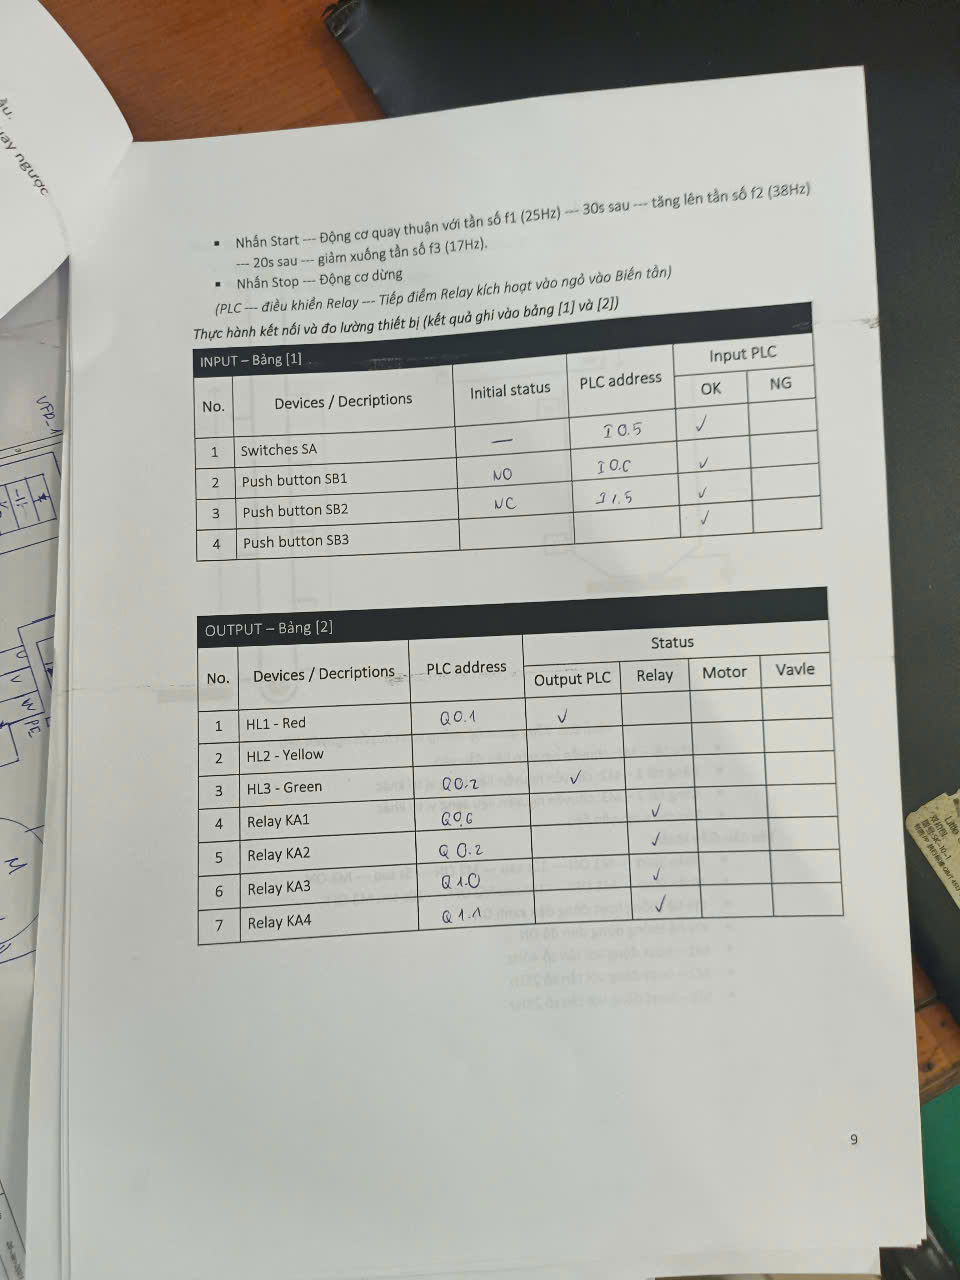 ay ngược
▪ Nhấn Start --- Động cơ quay thuận với tần số f1 (25Hz) --- 30s sau --- tăng lên tần số f2 (38Hz)
--- 20s sau --- giảm xuống tần số f3 (17Hz).
▪ Nhấn Stop --- Động cơ dừng
(PLC --- điều khiển Relay --- Tiếp điểm Relay kích hoạt vào ngỏ vào Biến tần)
Thực hành kết nối và đo lường thiết bị (kết quả ghi vào bảng [1] và [2])
INPUT – Bảng [1]
No. Devices / Decriptions Initial status PLC address Input PLC
OK NG
1 Switches SA — I0.5 ✓
2 Push button SB1 NO I0.6 ✓
3 Push button SB2 NC I1.5 ✓
4 Push button SB3 ✓
OUTPUT – Bảng [2]
No. Devices / Decriptions PLC address Status
Output PLC Relay Motor Vavle
1 HL1 - Red Q0.1 ✓
2 HL2 - Yellow
3 HL3 - Green Q0.2 ✓
4 Relay KA1 Q0.6 ✓
5 Relay KA2 Q0.2 ✓
6 Relay KA3 Q1.0 ✓
7 Relay KA4 Q1.1 ✓
9
VFD_1
U
V
W
PE
M